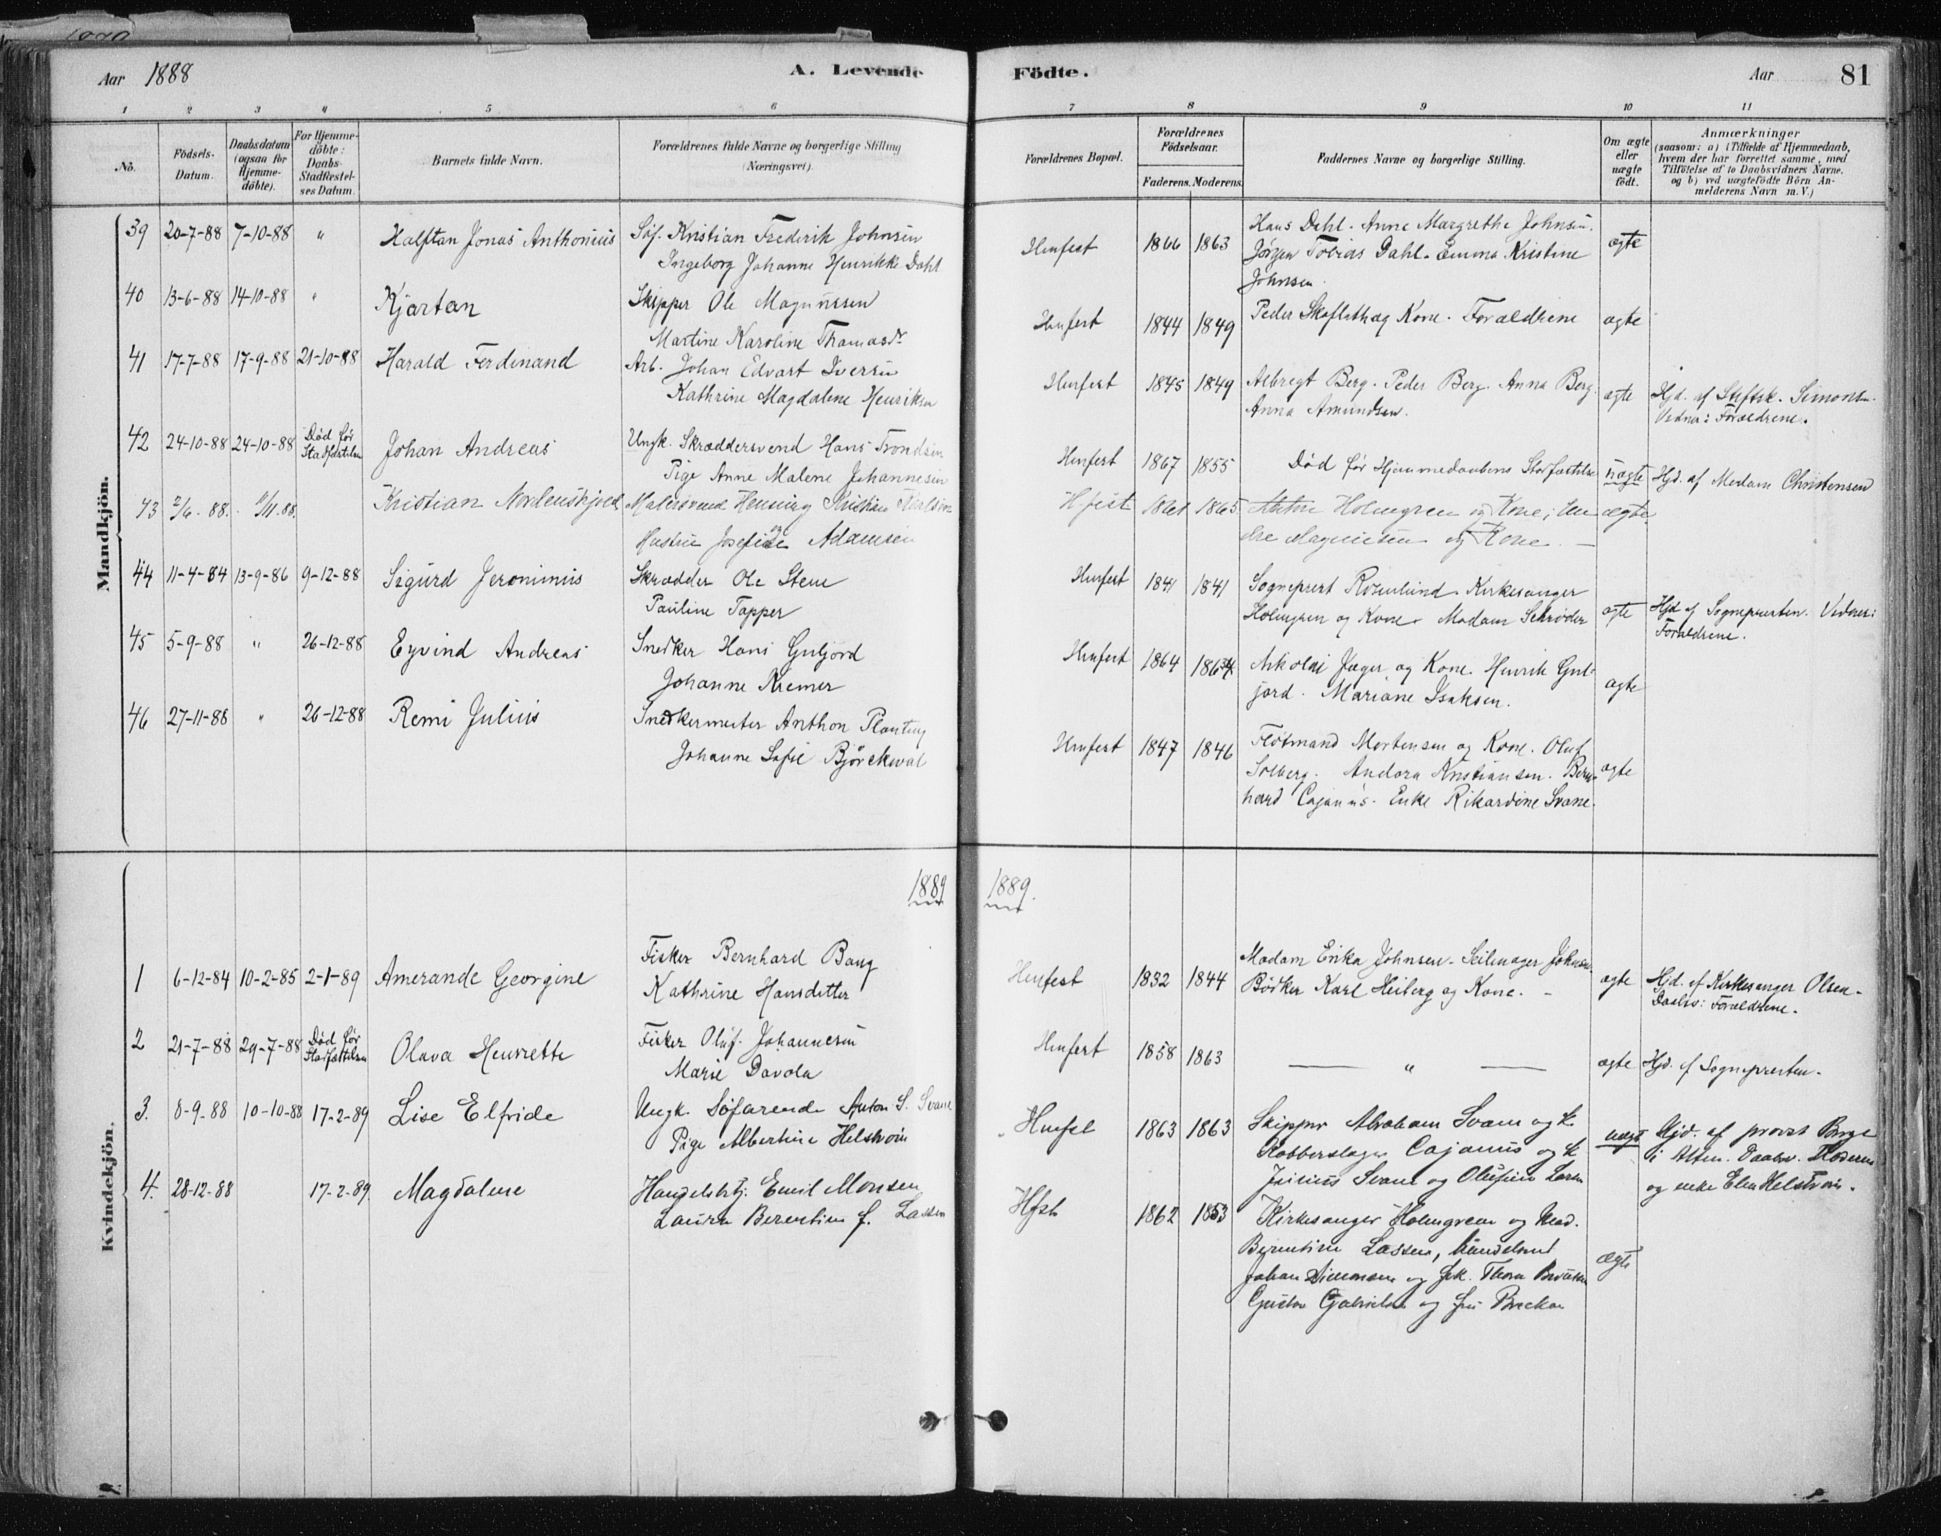 Aar 1888
A. Levende Födte.
Aar 81
1 2 3 4 5 6 7 8 9 10 11
No.
Födsels-Datum.
Daabsdatum (ogsaa for Hjemme-döbte).
For Hjemme-döbte: Daabs-Stadfæstel-ses Datum.
Barnets fulde Navn.
Forældrenes fulde Navne og borgerlige Stilling (Næringsvei).
Forældrenes Bopæl.
Forældrenes Födselsaar.
Faderens. Moderens.
Faddernes Navne og borgerlige Stilling.
Om ægte eller uægte født.
Anmærkninger
(saasom: a) i Tilfælde af Hjemmedaab,
hvem der har forrettet samme, med
Tilföielse af to Daabsvidners Navne.
og b) ved uægtefödte Börn An-
melderens Navn m. V.)
Mandkjön.
39 20-7-88 7-10-88 " Halftan Jonas Anthonius Søf. Kristian Frederik Johnsen
Ingeborg Johanne Henrikke Dahl
Hmfest 1866 1863 Hans Dahl. Anne Margrethe Johnsen.
Jørgen Tobias Dahl. Emma Kristine
Johnsen.
ægte
40 13-6-88 14-10-88 " Kjartan Skipper Ole Magnussen
Martine Karoline Thomasdr
Hmfest 1844 1849 Peder Skoflethog Kone. Forældrene ægte
41 17-7-88 17-9-88 21-10-88 Harald Ferdinand Arb. Johan Edvart Iversen
Kathrine Magdalene Henriksen
Hmfest 1845 1849 Albregt Berg. Peder Berg. Anna Berg.
Anna Amundsen.
ægte Hjd. af Stiftsk. Simonsen.
Vidner: Forældrene.
42 24-10-88 24-10-88 Død før Stadfæstelsen Johan Andreas Ungk. Skræddersvend Hans Trondsen
Pige Anne Malene Johannesen
Hmfest 1867 1855 Død før Hjemmedaabens Stadfæstelse uægte Hjd. af Madam Christensen
43 2/6-88. 11/11.88. Kristian Nordenskjold Malersvend Henning Kristian
Hustru Josefine Adamsen
Hfest 1861 1865 Anton Holmgren og Kone;
Magnusen og Kone.
ægte
44 11-4-84 13-9-86 9-12-88 Sigurd Jeronimus Skrædder Ole Stene
Pauline Tapper
Hmfest 1841 1841 Sogneprest Rosenlund. Kirkesanger
Holmgren og Kone. Madam Schrøder
ægte Hjd af Sognepresten. Vidner:
Forældrene.
45 5-9-88 " 26-12-88 Eyvind Andreas Snedker Hans Guljord
Johanne Kremer
Hmfest 1864 1864 Nikolai Jæger og Kone. Henrik Gul-
jord. Mariane Isaksen.
ægte
46 27-11-88 " 26-12-88 Remi Julius Snedkermester Anthon Planting
Johanne Sofie Bjørckwal
Hmfest 1847 1846 Fløtmand Mortensen og Kone. Oluf
Solberg. Andora Kristiansen. Bern-
hard Cajanus. Enke Rikardine Svane.
ægte
1889 1889.
Kvindekjön.
1 6-12-84 10-2-85 2-1-89 Amerande Georgine Fisker Bernhard Bang
Kathrine Hansdatter
Hmfest 1832 1844 Madam Erika Johnsen. Seilmager Johnsen
Bødker Karl Heiberg og Kone. -
ægte Hjd. af Kirkesanger Olsen-
Daabsv: Forældrene.
2 21-7-88 29-7-88 Død før Stadfæstelsen Olava Henrette Fisker Oluf Johannesen
Marie Davola
Hmfest 1858 1863 — " — ægte Hjd. af Sognepresten.
3. 8-9-88 10-10-88 17-2-89 Lise Elfride Ungk. Søfarende Anton S. Svane
Pige Albertine Helstrøm
Hmfest 1863 1863 Skipper Abraham Svane og k.
Kobberslager Cajanus og k
Junius Svane og Olufine Larsen
uægte Hjd. af provst Berge
i Alten. Daabsv. Moderen
og enke Elen Helstrøm.
4. 28-12-88 17-2-89 Magdalene Handelsbtj. Emil Monsen
Laura Berentine f. Lassen
Hfst 1862 1853 Kirkesanger Holmgren og Mad.
Berentine Lassen,
Johan Simonsen og frk. Thora
Gustav Gabrielsen og fru
ægte